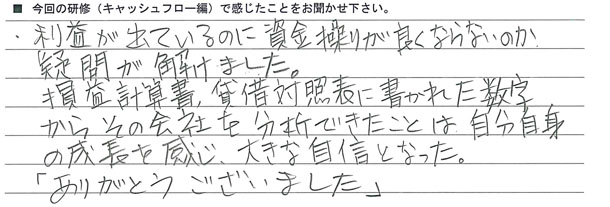 ■ 今回の研修（キャッシュフロー編）で感じたことをお聞かせ下さい。
・利益が出ているのに資金操りが良くならないのか
疑問が解けました。
損益計算書、貸借対照表に書かれた数字
からその会社を分析できたことは、自分自身
の成長を感じ、大きな自信となった。
「ありがとうございました」